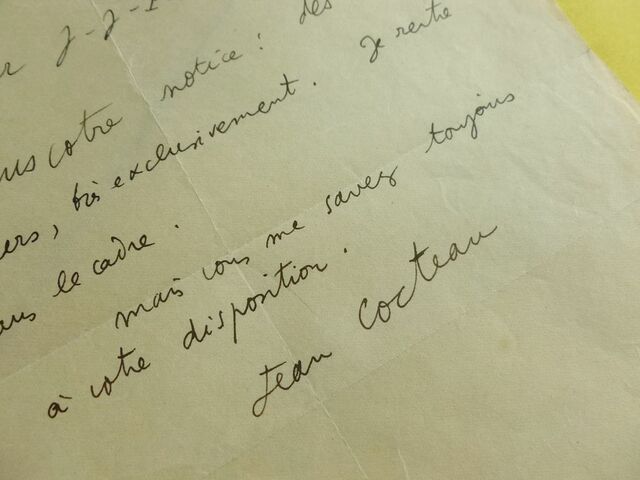 J-J-
notice : des
votre
exclusivement. Je rentre
le cadre.
mais vous me savez toujours
à votre disposition.
Jean Cocteau